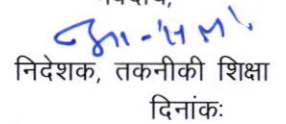 निदेशक, तकनीकी शिक्षा
दिनांकः